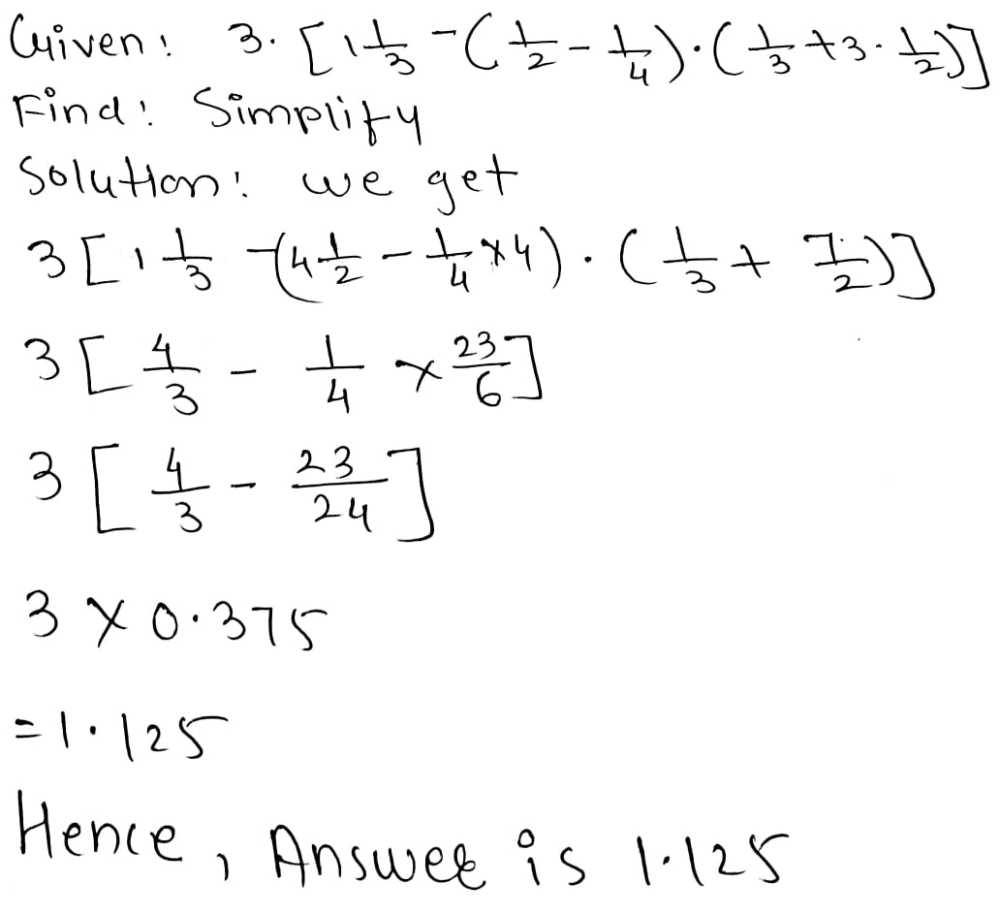 Given: 3. [1 1/3 - (1/2 - 1/4) . (1/3 + 3 . 1/2)]
Find: Simplify
Solution: we get
3 [1 1/3 - (4 1/2 - 1/4 × 4) . (1/3 + 7/2)]
3 [4/3 - 1/4 × 23/6]
3 [4/3 - 23/24]
3 × 0.375
= 1.125
Hence, Answer is 1.125